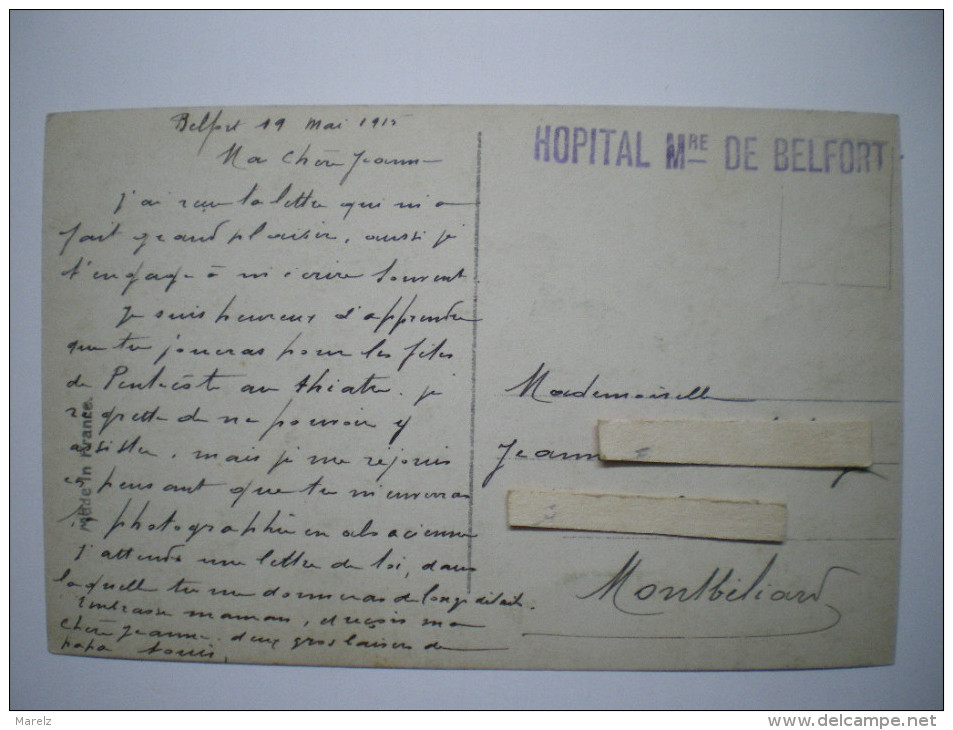 Belfort 19 mai 1915
Ma chère Jeanne
J'ai reçu ta lettre qui m'a
fait grand plaisir, aussi je
t'engage à m'écrire souvent
Je suis heureux d'apprendre
que tu joueras pour les fêtes
de Pentecôte au théatre. je
regrette de ne pouvoir y
assister, mais je me réjouis
en pensant que tu m'enverras
photographie en alsacienne
J'attends une lettre de toi, dans
laquelle tu me donneras de longs détails.
Embrasse maman, et reçois ma
chère Jeanne, deux gros baisers de
papa Louis.
Made in France.
HOPITAL MRE DE BELFORT
Mademoiselle
Jeanne
Montbéliard
Marelz
www.delcampe.net